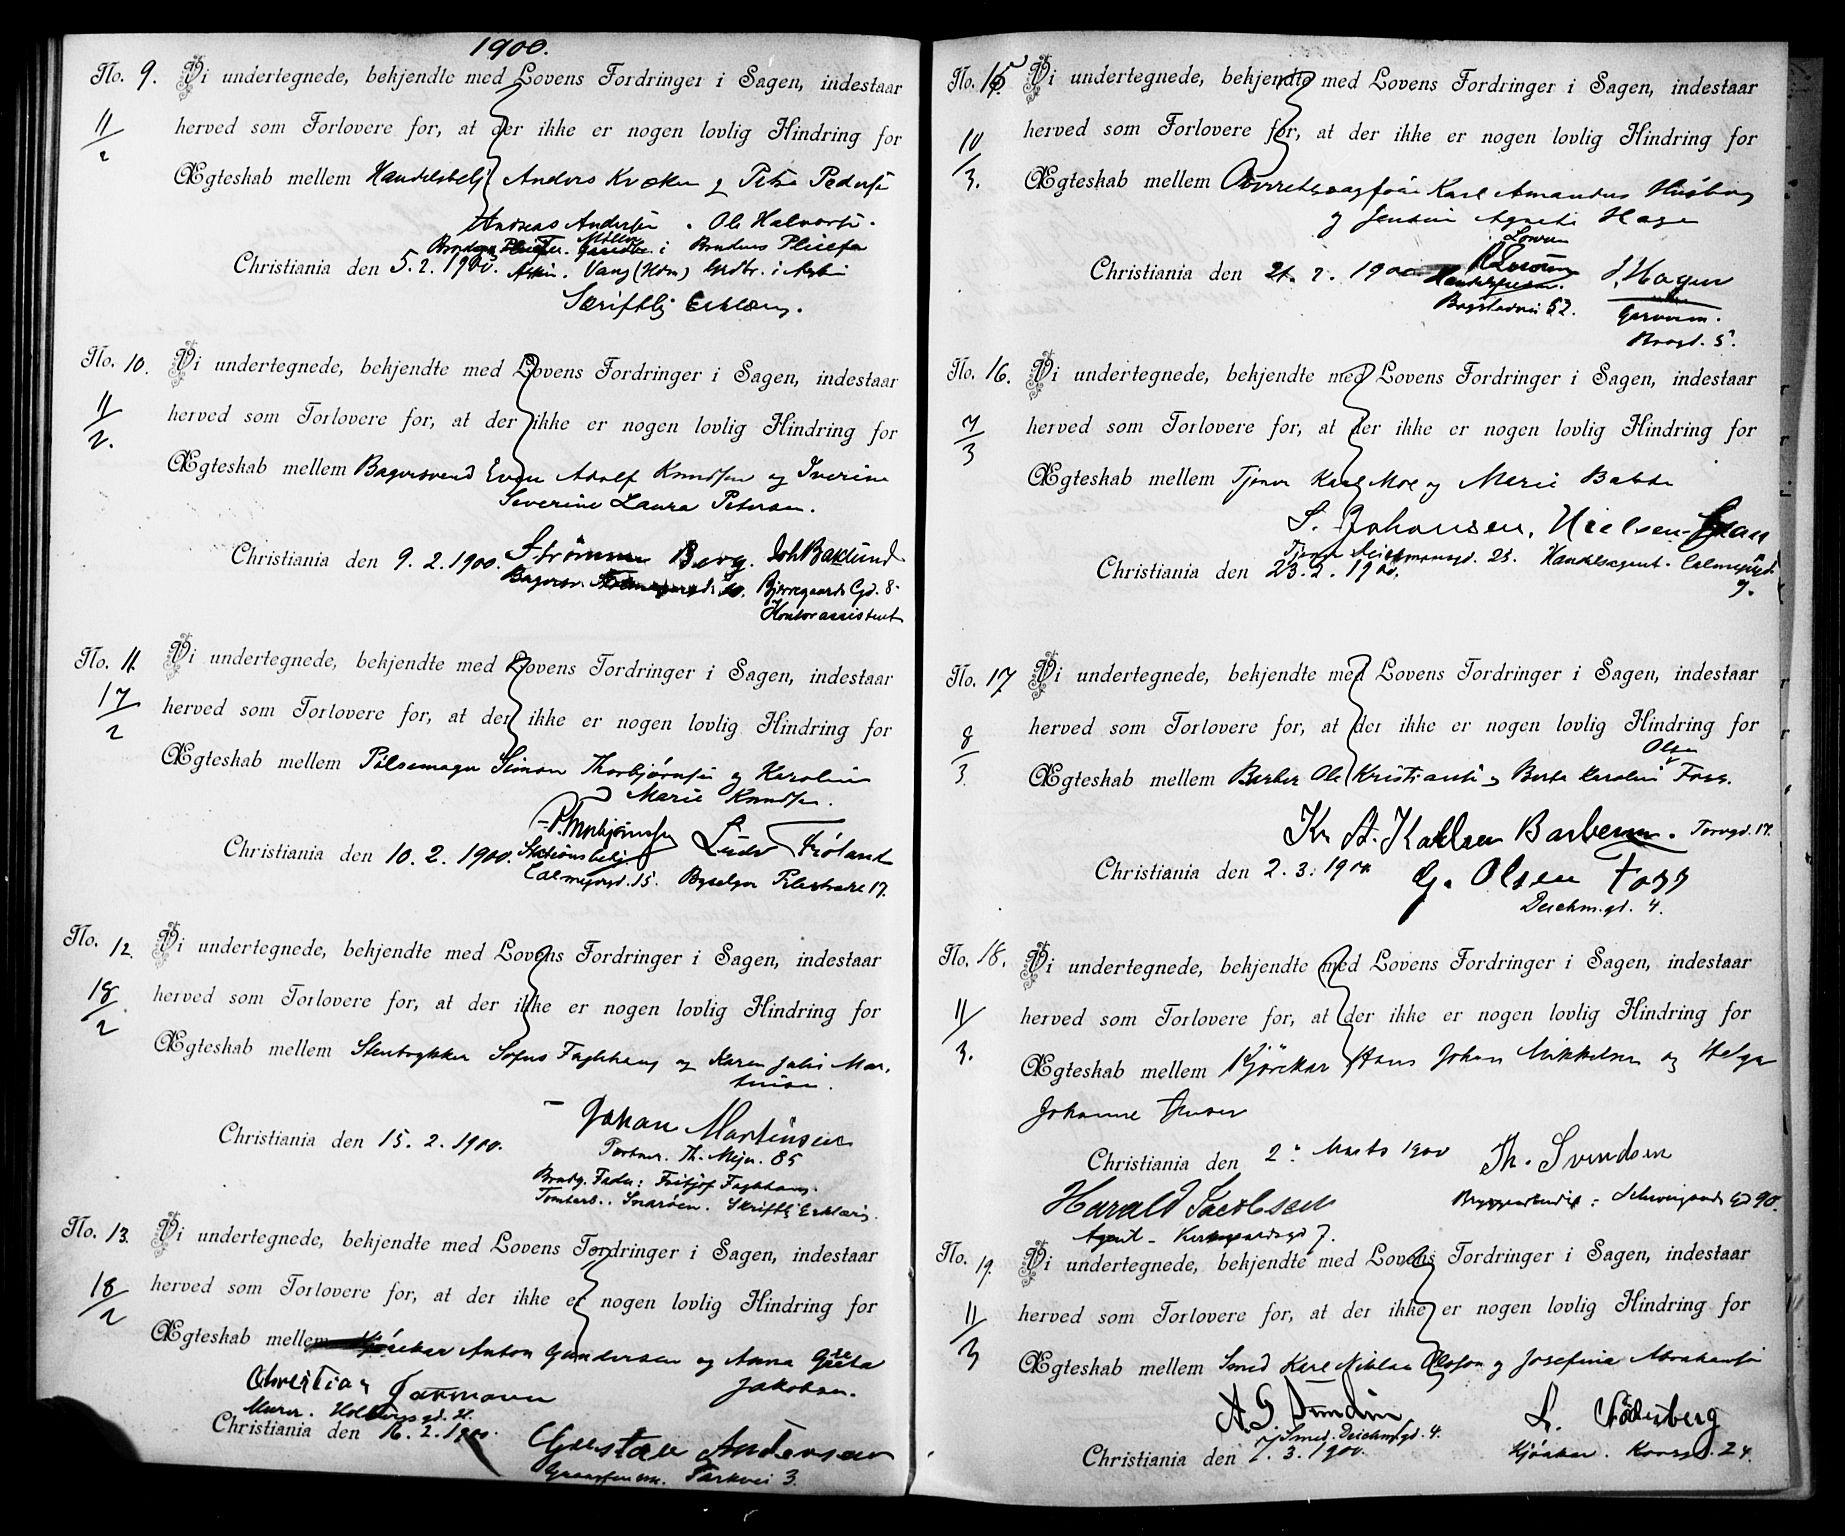 1900.
No. 9. Vi undertegnede, bekjendte med Lovens Fordringer i Sagen, indestaar
11/2 herved som Forlovere for, at der ikke er nogen lovlig Hindring for
Ægteskab mellem Handelsbetj. Anders Kvæken og Petra Pedersen
Andreas Andersen. Ole Halvorsen.
Møllen
i Brudens
Christiania den 5.2.1900. Vang (Hdm)
Skriftlig Erklæring.
No. 10. Vi undertegnede, bekjendte med Lovens Fordringer i Sagen, indestaar
11/2. herved som Forlovere for, at der ikke er nogen lovlig Hindring for
Ægteskab mellem Bagersvend Even Adolf Knudsen og Iverine
Severine Laura Petersen.
Christiania den 9.2.1900. Strømm Berg. Joh Baklund
Bagersv. Bjerregaards Gd. 8
Kontorassistent
No. 11. Vi undertegnede, bekjendte med Lovens Fordringer i Sagen, indestaar
17/2 herved som Forlovere for, at der ikke er nogen lovlig Hindring for
Ægteskab mellem Pølsemager Simon Thorbjørnsen og Karoline
Marie Knudsen.
P. Thorbjørnsen Ludv Frøland
Christiania den 10.2.1900.
Calmeyergd. 15. Pilestrædet 17.
No. 12. Vi undertegnede, bekjendte med Lovens Fordringer i Sagen, indestaar
18/2 herved som Forlovere for, at der ikke er nogen lovlig Hindring for
Ægteskab mellem Stenhugger Sofus Faghhaug og Karen Julie Mar-
tinsen.
Johan Martinsen
Christiania den 15.2.1900.
Portner. Th. Mejer. 85
Brudg. Fader: Fritjof Faghhaug.
Tomtearb. Snarøen. Skriftlig Erklæring.
No. 13. Vi undertegnede, bekjendte med Lovens Fordringer i Sagen, indestaar
18/2 herved som Forlovere for, at der ikke er nogen lovlig Hindring for
Ægteskab mellem Kjørekar Anton Gundersen og Anna Greta
Jakobsen.
Christian Jarmann
Murer. Holbergsgd.
Christiania den 16.2.1900. Gustav Andersen
Parkvei 3.
No. 15. Vi undertegnede, bekjendte med Lovens Fordringer i Sagen, indestaar
10/3. herved som Forlovere for, at der ikke er nogen lovlig Hindring for
Ægteskab mellem Overretssagfører Karl Amandus Husborg
og Jensine Agnete Hagen
Christiania den 21.2.1900 J. Hagen
Bogstadvei 52. Garverm.
Brogd. 5.
No. 16. Vi undertegnede, bekjendte med Lovens Fordringer i Sagen, indestaar
7/3 herved som Forlovere for, at der ikke er nogen lovlig Hindring for
Ægteskab mellem Tjener Karl Moe og Marie Bakke
S. Johansen, Nielsen-Gran
Tjener Deichmansgd. 25. Handelsagent. Calmeyergd.
Christiania den 23.2.1900. 9.
No. 17 Vi undertegnede, bekjendte med Lovens Fordringer i Sagen, indestaar
8/3. herved som Forlovere for, at der ikke er nogen lovlig Hindring for
Olsen
Ægteskab mellem Barber Ole Kristiansen og Berta Karoline Foss.
Kr A. Karlsen Barberm. Torvgd. 17.
Christiania den 2.3.1900 G. Olsen Foss
Deichm.gd. 4.
No. 18. Vi undertegnede, bekjendte med Lovens Fordringer i Sagen, indestaar
11/3. herved som Forlovere for, at der ikke er nogen lovlig Hindring for
Ægteskab mellem Kjörekar Hans Johan Mikkelsen og Helga
Johanne
Christiania den 2. Marts 1900 Th. Svendsen
Harald Jacobsen Bryggearbeider Schweigaards Gd 90.
Agent - Kirkegaardsgd 7.
No. 19. Vi undertegnede, bekjendte med Lovens Fordringer i Sagen, indestaar
11/3 herved som Forlovere for, at der ikke er nogen lovlig Hindring for
Ægteskab mellem Smed Karl Niklas Olofson og Josefina Abrahamsen
A G Sundin L. Söderberg
Smed. Deichmsgd. 4.
Christiania den 7.3.1900. Kjørekar. Korsgd. 24.